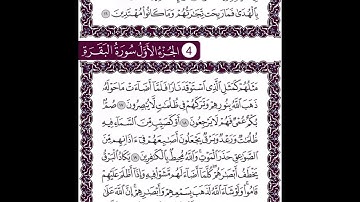 بِالْهُدَىٰ فَمَا رَبِحَت تِّجَارَتُهُمْ وَمَا كَانُوا مُهْتَدِينَ ١٦
الجزء الأول سورة البقرة 4
مَثَلُهُمْ كَمَثَلِ الَّذِي اسْتَوْقَدَ نَارًا فَلَمَّا أَضَاءَتْ مَا حَوْلَهُ
ذَهَبَ اللَّهُ بِنُورِهِمْ وَتَرَكَهُمْ فِي ظُلُمَاتٍ لَّا يُبْصِرُونَ ١٧ صُمٌّ
بُكْمٌ عُمْيٌ فَهُمْ لَا يَرْجِعُونَ ١٨ أَوْ كَصَيِّبٍ مِّنَ السَّمَاءِ فِيهِ
ظُلُمَاتٌ وَرَعْدٌ وَبَرْقٌ يَجْعَلُونَ أَصَابِعَهُمْ فِي آذَانِهِم مِّنَ
الصَّوَاعِقِ حَذَرَ الْمَوْتِ وَاللَّهُ مُحِيطٌ بِالْكَافِرِينَ ١٩ يَكَادُ الْبَرْقُ
يَخْطَفُ أَبْصَارَهُمْ كُلَّمَا أَضَاءَ لَهُم مَّشَوْا فِيهِ وَإِذَا أَظْلَمَ عَلَيْهِمْ
قَامُوا وَلَوْ شَاءَ اللَّهُ لَذَهَبَ بِسَمْعِهِمْ وَأَبْصَارِهِمْ إِنَّ اللَّهَ عَلَىٰ